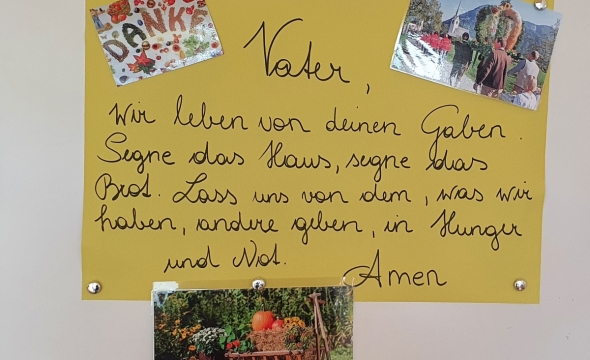 DANKE
Vater,
Wir leben von deinen Gaben.
Segne das Haus, segne das
Brot. Lass uns von dem, was wir
haben, andere geben, in Hunger
und Not.
Amen